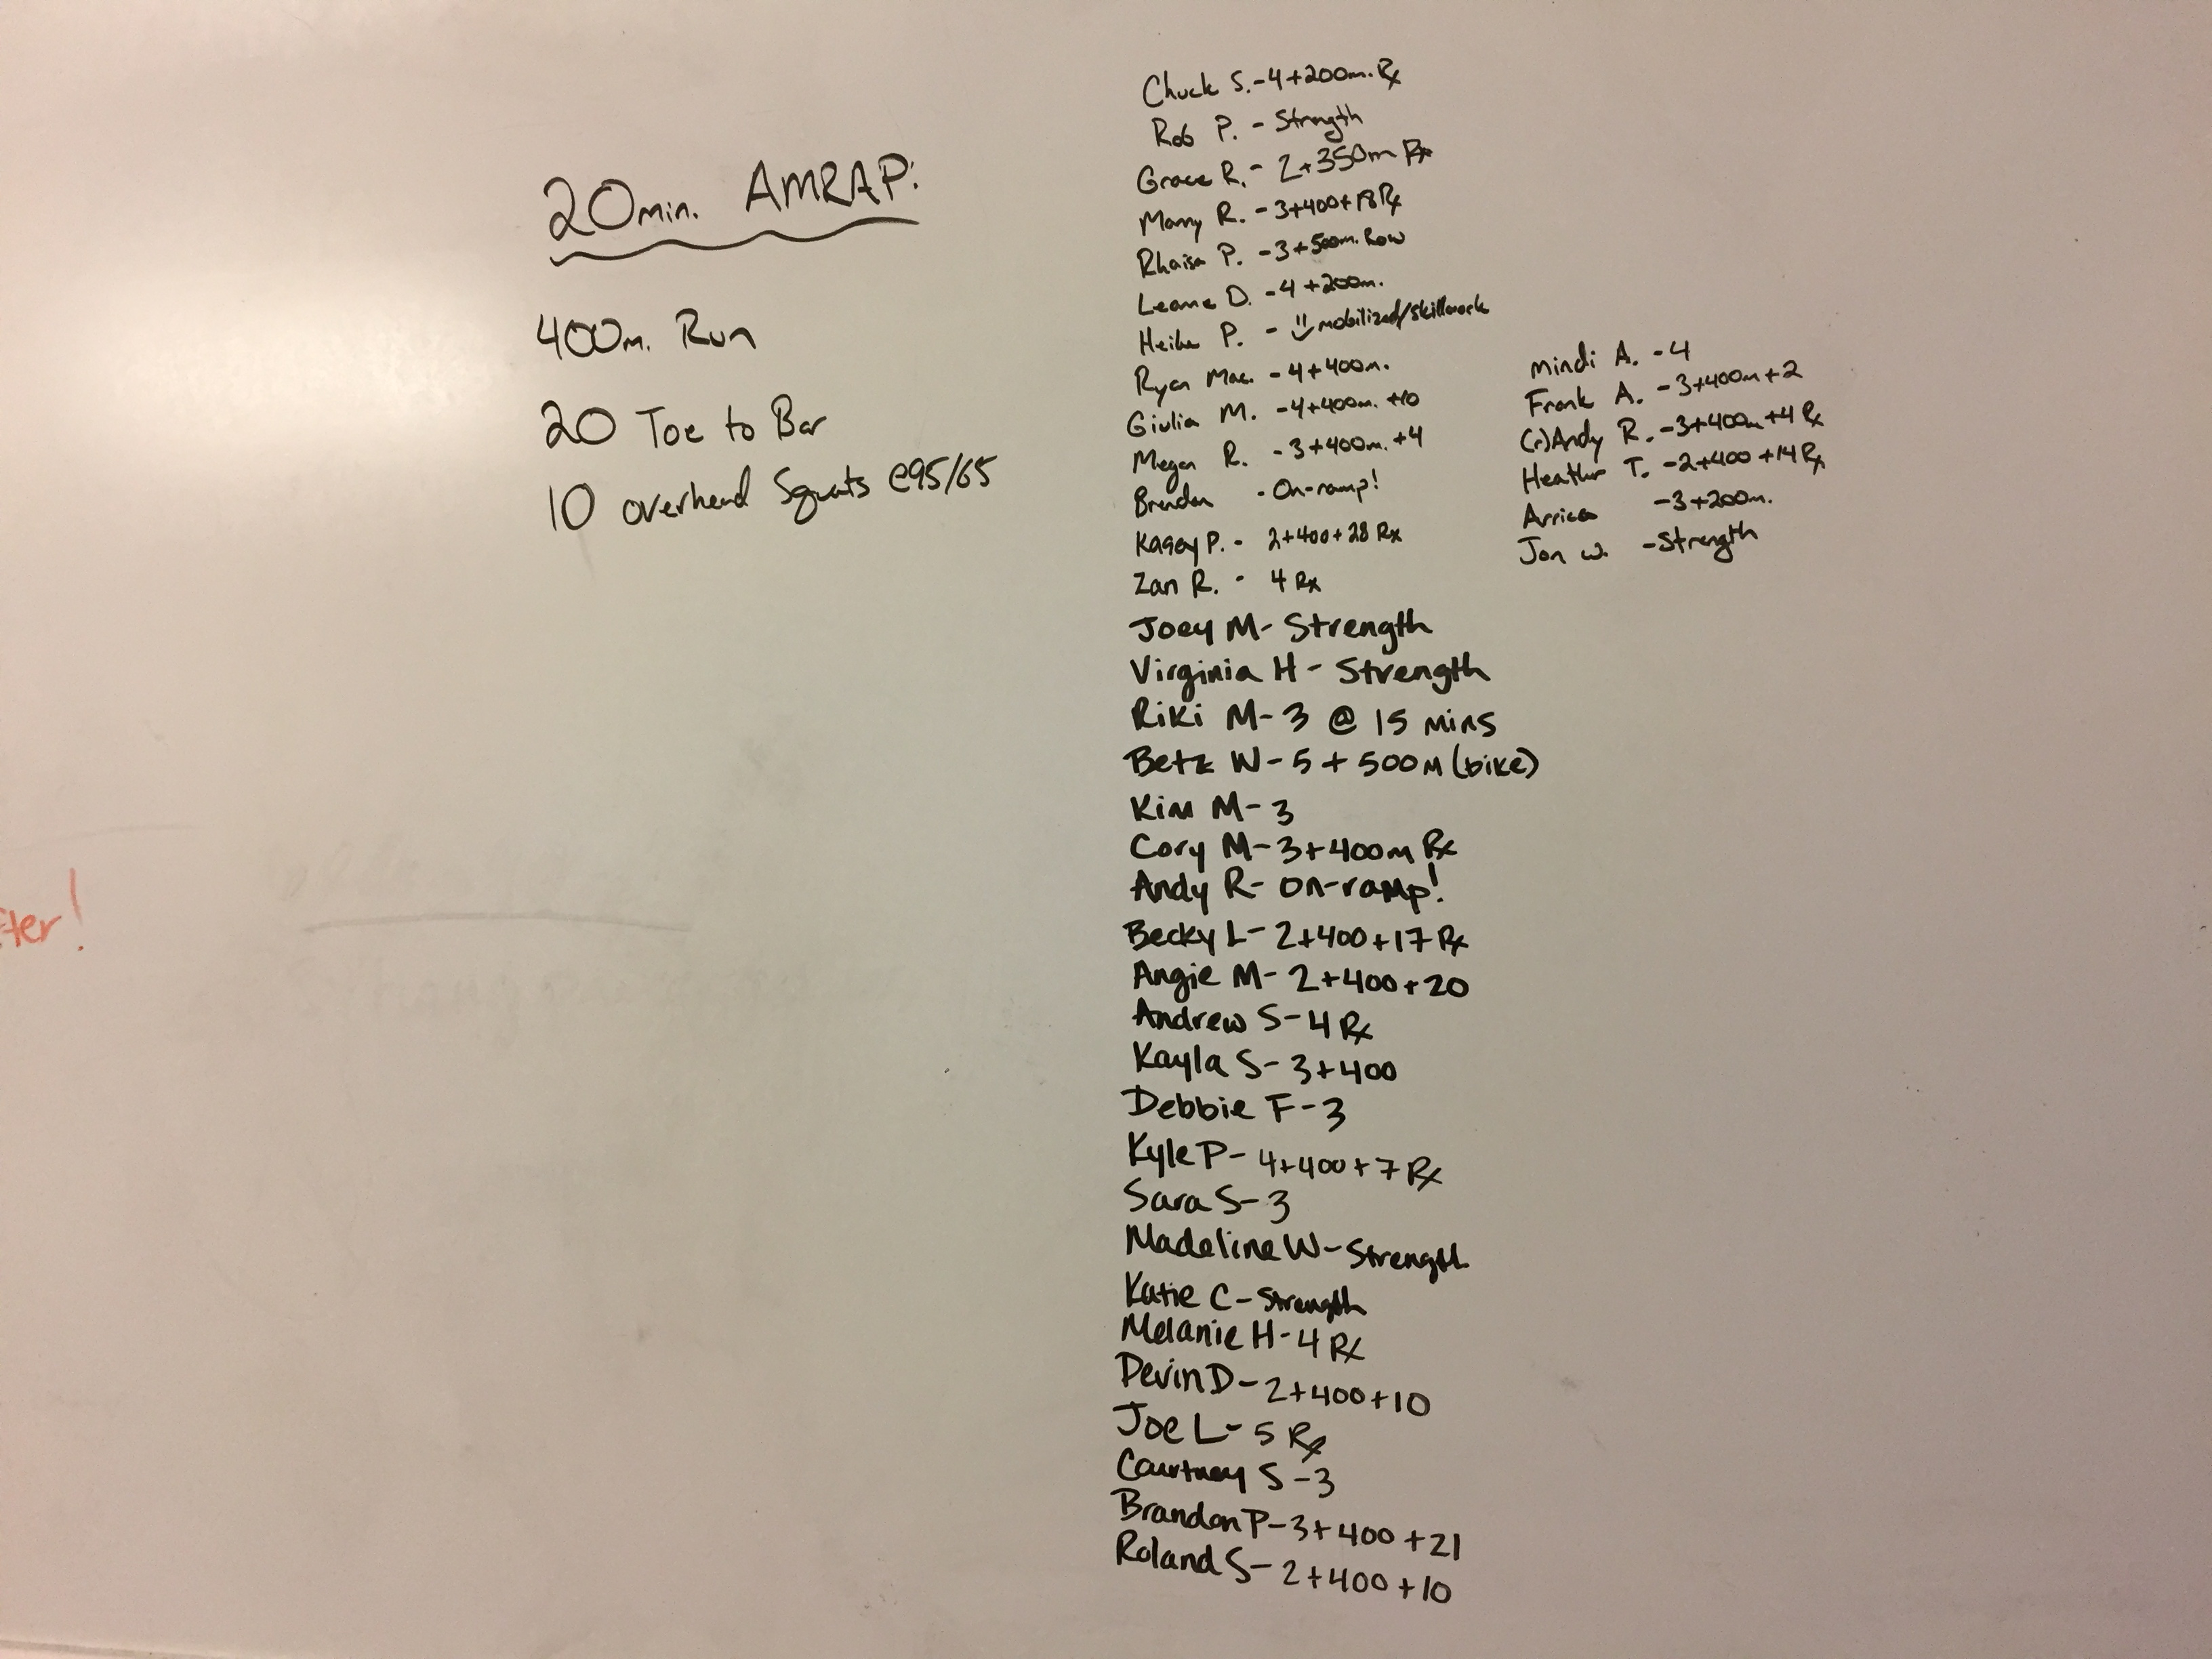 20min. AMRAP:
400m. Run
20 Toe to Bar
10 overhead Squats @95/65
fter!
Chuck S. - 4+200m. Rx
Rob P. - Strength
Grace R. - 2+350m Rx
Marry R. - 3+400+18 Rx
Rhaisa P. - 3+500m. Row
Leanne D. - 4+200m.
Heike P. - mobilized/skillwork
Ryan Mac. - 4+400m.
Giulia M. - 4+400m. +10
Megan R. - 3+400m. +4
Brendan - On-ramp!
Kasey P. - 2+400+28 Rx
Zan R. - 4 Rx
Joey M - Strength
Virginia H - Strength
Riki M - 3 @ 15 mins
Betz W - 5 + 500m (bike)
Kim M - 3
Cory M - 3+400m Rx
Andy R - On-ramp!
Becky L - 2+400+17 Rx
Angie M - 2+400+20
Andrew S - 4 Rx
Kayla S - 3+400
Debbie F - 3
Kyle P - 4+400+7 Rx
Sara S - 3
Madeline W - Strength
Katie C - Strength
Melanie H - 4 Rx
Devin D - 2+400+10
Joe L - 5 Rx
Courtney S - 3
Brandon P - 3+400+21
Roland S - 2+400+10
mindi A. - 4
Frank A. - 3+400m+2
(r)Andy R. - 3+400m+4 Rx
Heather T. - 2+400+14 Rx
Arrica - 3+200m.
Jon W. - Strength